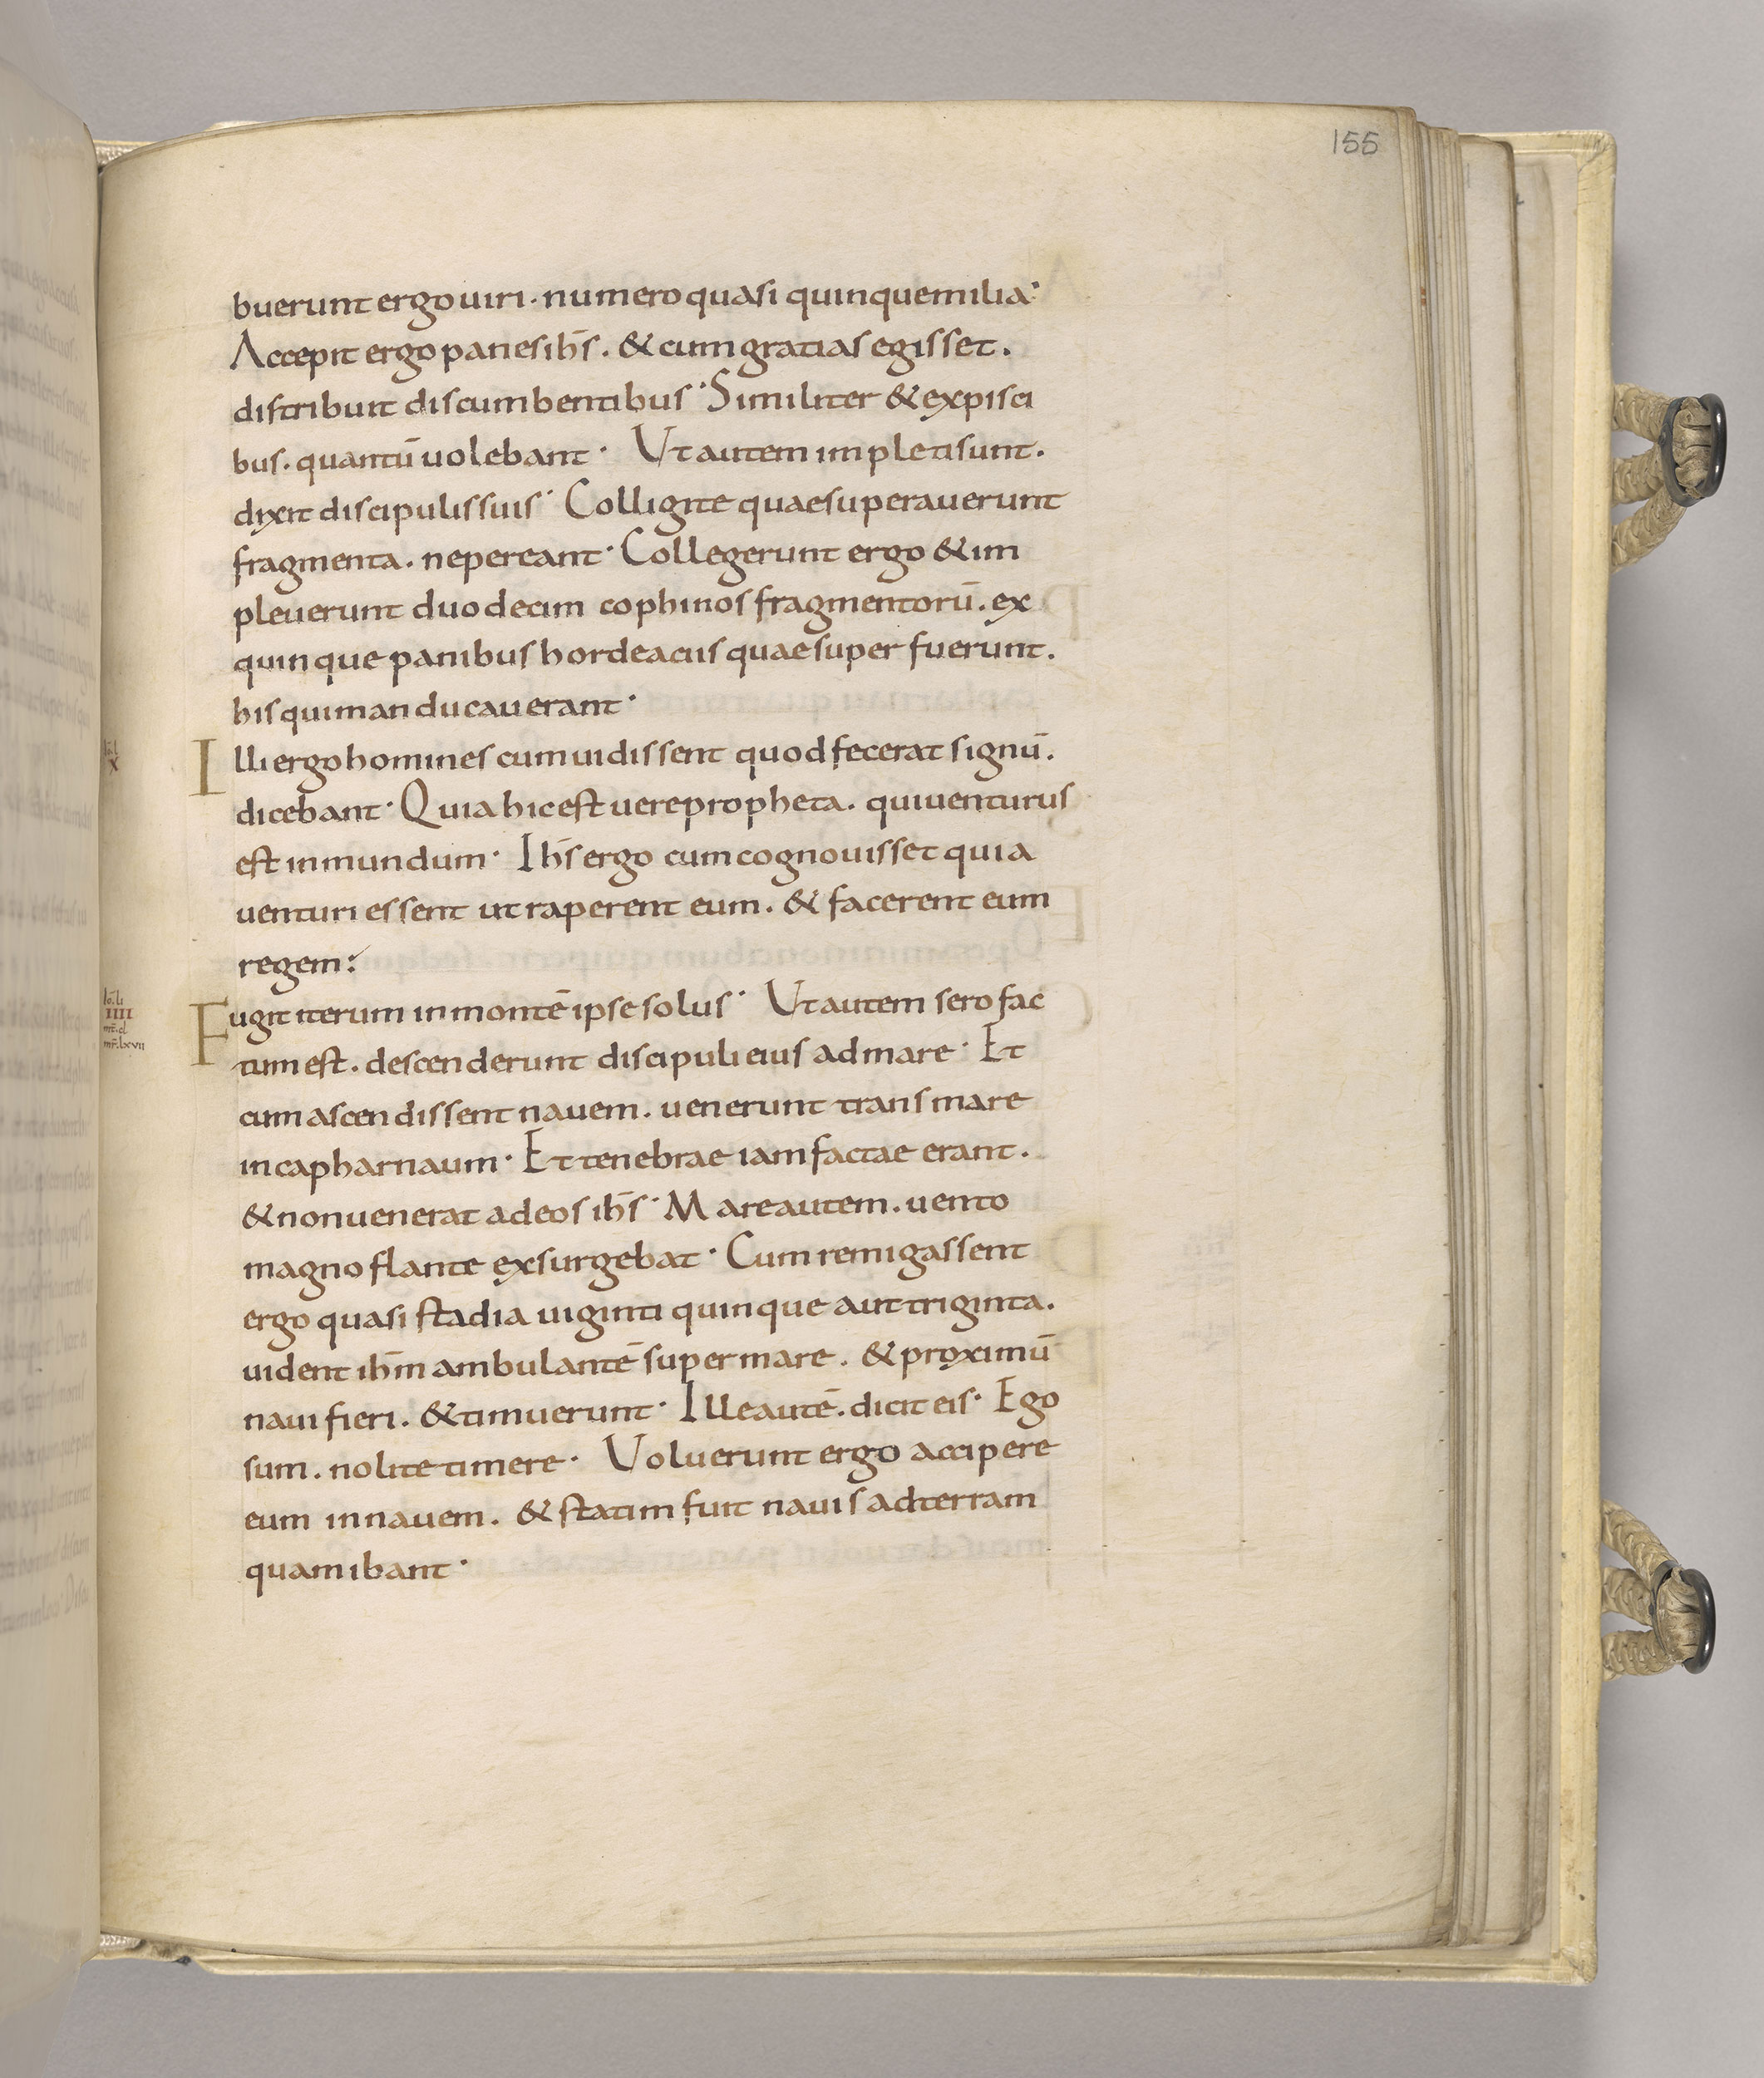 155
buerunt ergo uiri · numero quasi quinque milia:
Accepit ergo panes ih̅s . & cum gratias egisset .
distribuit discumbentibus · Similiter & ex pisci
bus . quantū uolebant · Ut autem impleti sunt .
dixit discipulis suis · Colligite quae superauerunt
fragmenta . ne pereant · Collegerunt ergo & im
pleuerunt duodecim cophinos fragmentorū . ex
quinque panibus hordeaciis quae superfuerunt .
his qui manducauerant ·
io̅l
x
Illi ergo homines cum uidissent quod fecerat signū .
dicebant · Quia hic est uere propheta . qui uenturus
est in mundum · Ih̅s ergo cum cognouisset quia
uenturi essent ut raperent eum . & facerent eum
regem :
io̅.li
IIII
mt̅.cl
mr̅.lxvii
Fugit iterum in montē ipse solus · Ut autem sero fac
tum est . descenderunt discipuli eius ad mare · Et
cum ascendissent nauem . uenerunt trans mare
in capharnaum · Et tenebrae iam factae erant .
& non uenerat ad eos ih̅s · Mare autem . uento
magno flante exsurgebat · Cum remigassent
ergo quasi stadia uiginti quinque aut triginta .
uident ih̅m ambulantē super mare . & proximū
naui fieri . & timuerunt · Ille autē . dicit eis · Ego
sum . nolite timere · Voluerunt ergo accipere
eum in nauem . & statim fuit nauis ad terram
quam ibant ·